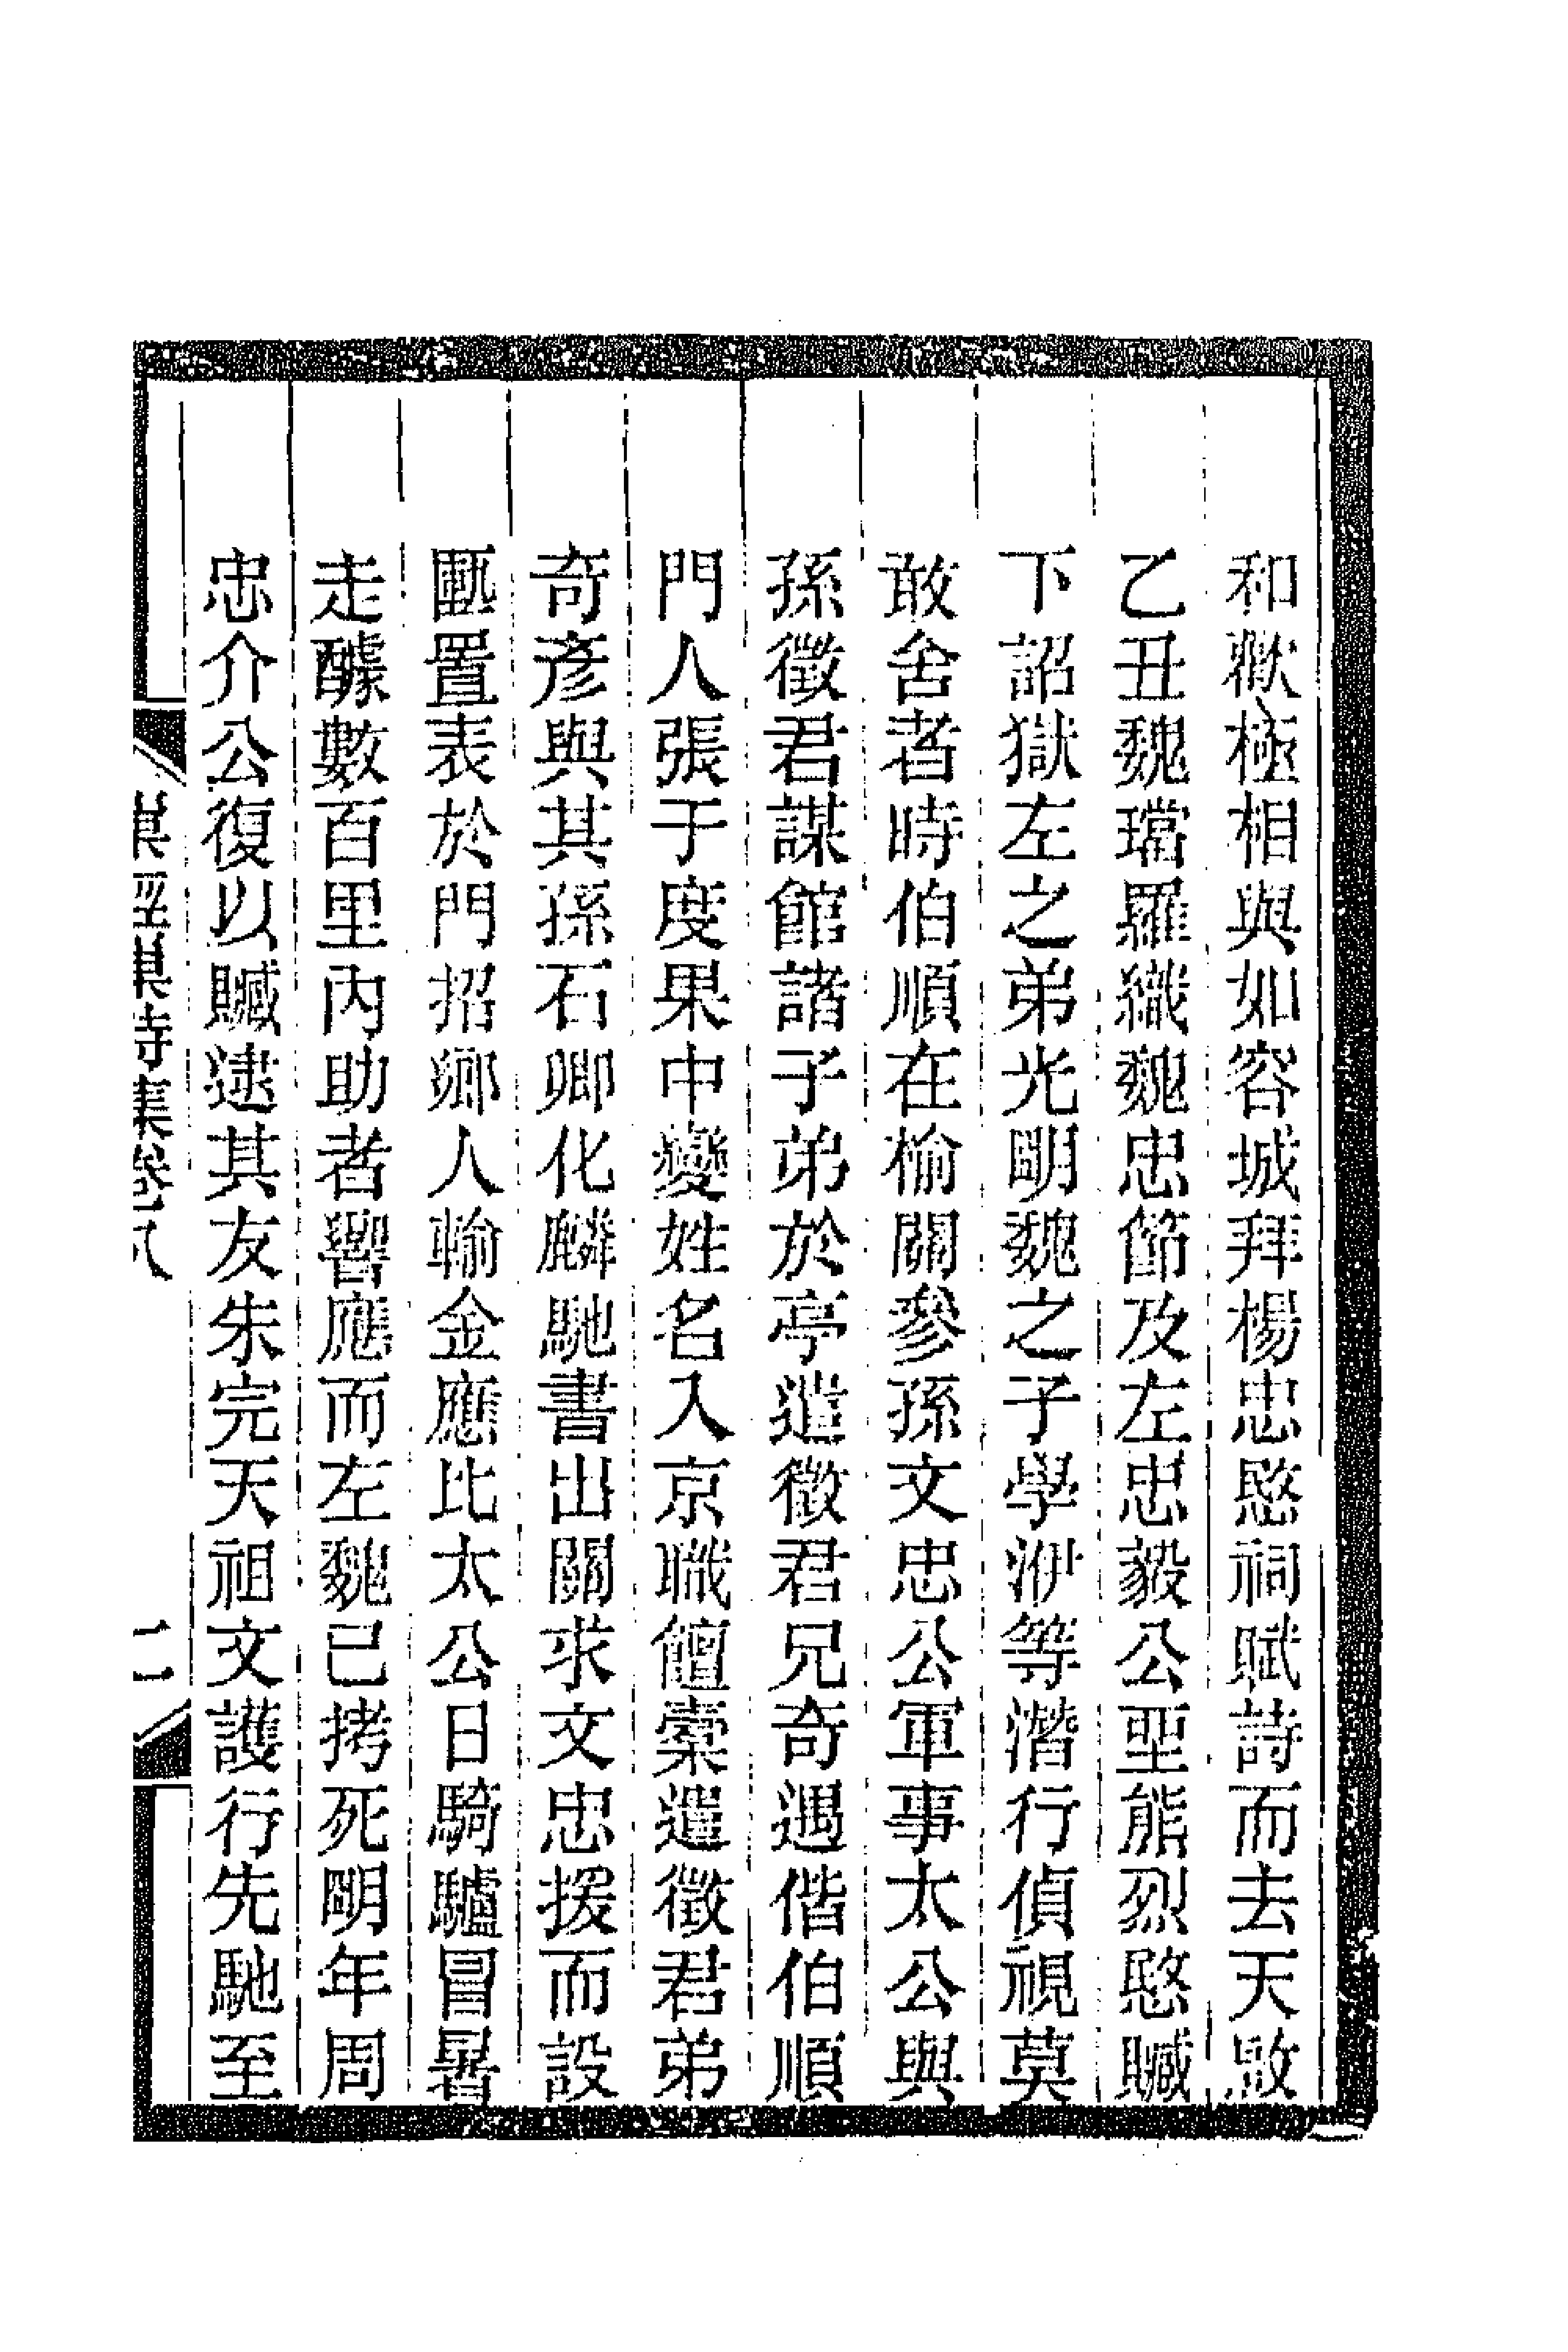 和歡極相與如容城拜楊忠愍祠賦詩而去天啟
乙丑魏璫羅織魏忠節及左忠毅公坐熊烈愍贓
下詔獄左之弟光明魏之子學洢等潛行偵視莫
敢舍者時伯順在榆關參孫文忠公軍事太公與
孫徵君謀館諸子弟於亭遣徵君兄奇遇偕伯順
門人張于度果中變姓名入京職饘橐遣徵君弟
奇彥與其孫石卿化麟馳書出關求文忠援而設
匭置表於門招鄉人輸金應比太公日騎驢冒暑
走醵數百里內助者響應而左魏已拷死明年周
忠介公復以贓逮其友朱完天祖文護行先馳至
集卷八
二